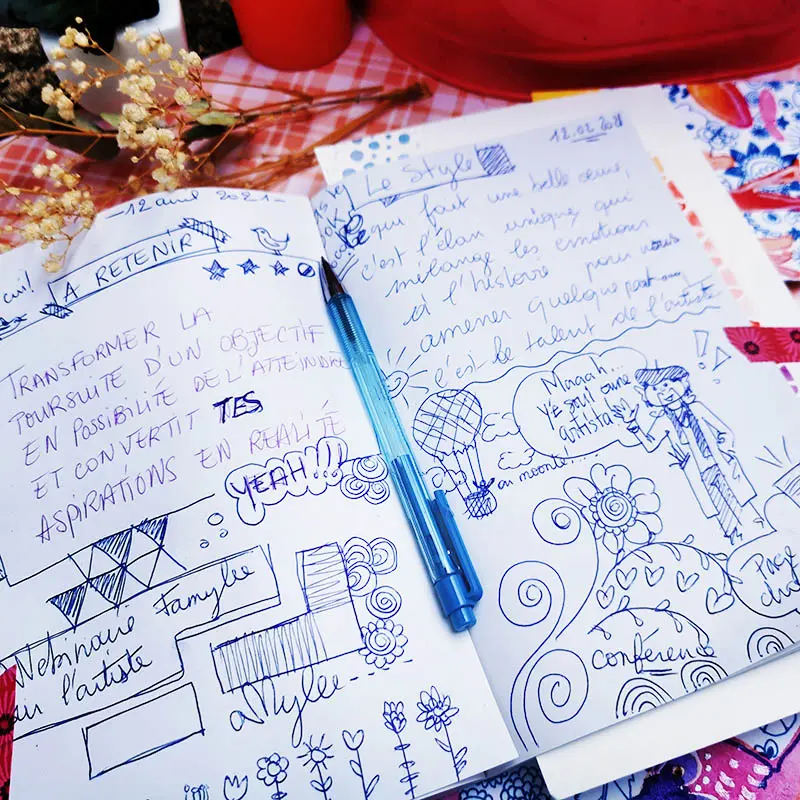 - 12 avril 2021 -
A RETENIR
TRANSFORMER LA
POURSUITE D'UN OBJECTIF
EN POSSIBILITÉ DE L'ATTEINDRE
ET CONVERTIT TES
ASPIRATIONS EN REALITÉ
YEAH!!!
Webinaire Famylee
l'artiste
aMylee
12.02.2021
Le Style
qui fait une belle œuvre,
c'est l'élan unique, qui
mélange les émotions
à l'histoire pour nous
amener quelque part
c'est le talent de l'artiste
Maaah...
y'é soui oune
artista
au monde!...
Page
du
conférence